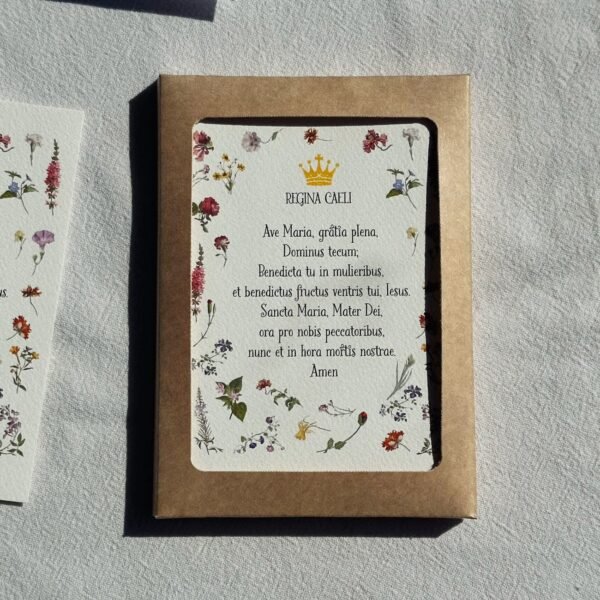 REGINA CAELI
Ave Maria, grátia plena,
Dominus tecum;
Benedicta tu in mulieribus,
et benedictus fructus ventris tui, Iesus.
Sancta Maria, Mater Dei,
ora pro nobis peccatoribus,
nunc et in hora mortis nostrae.
Amen